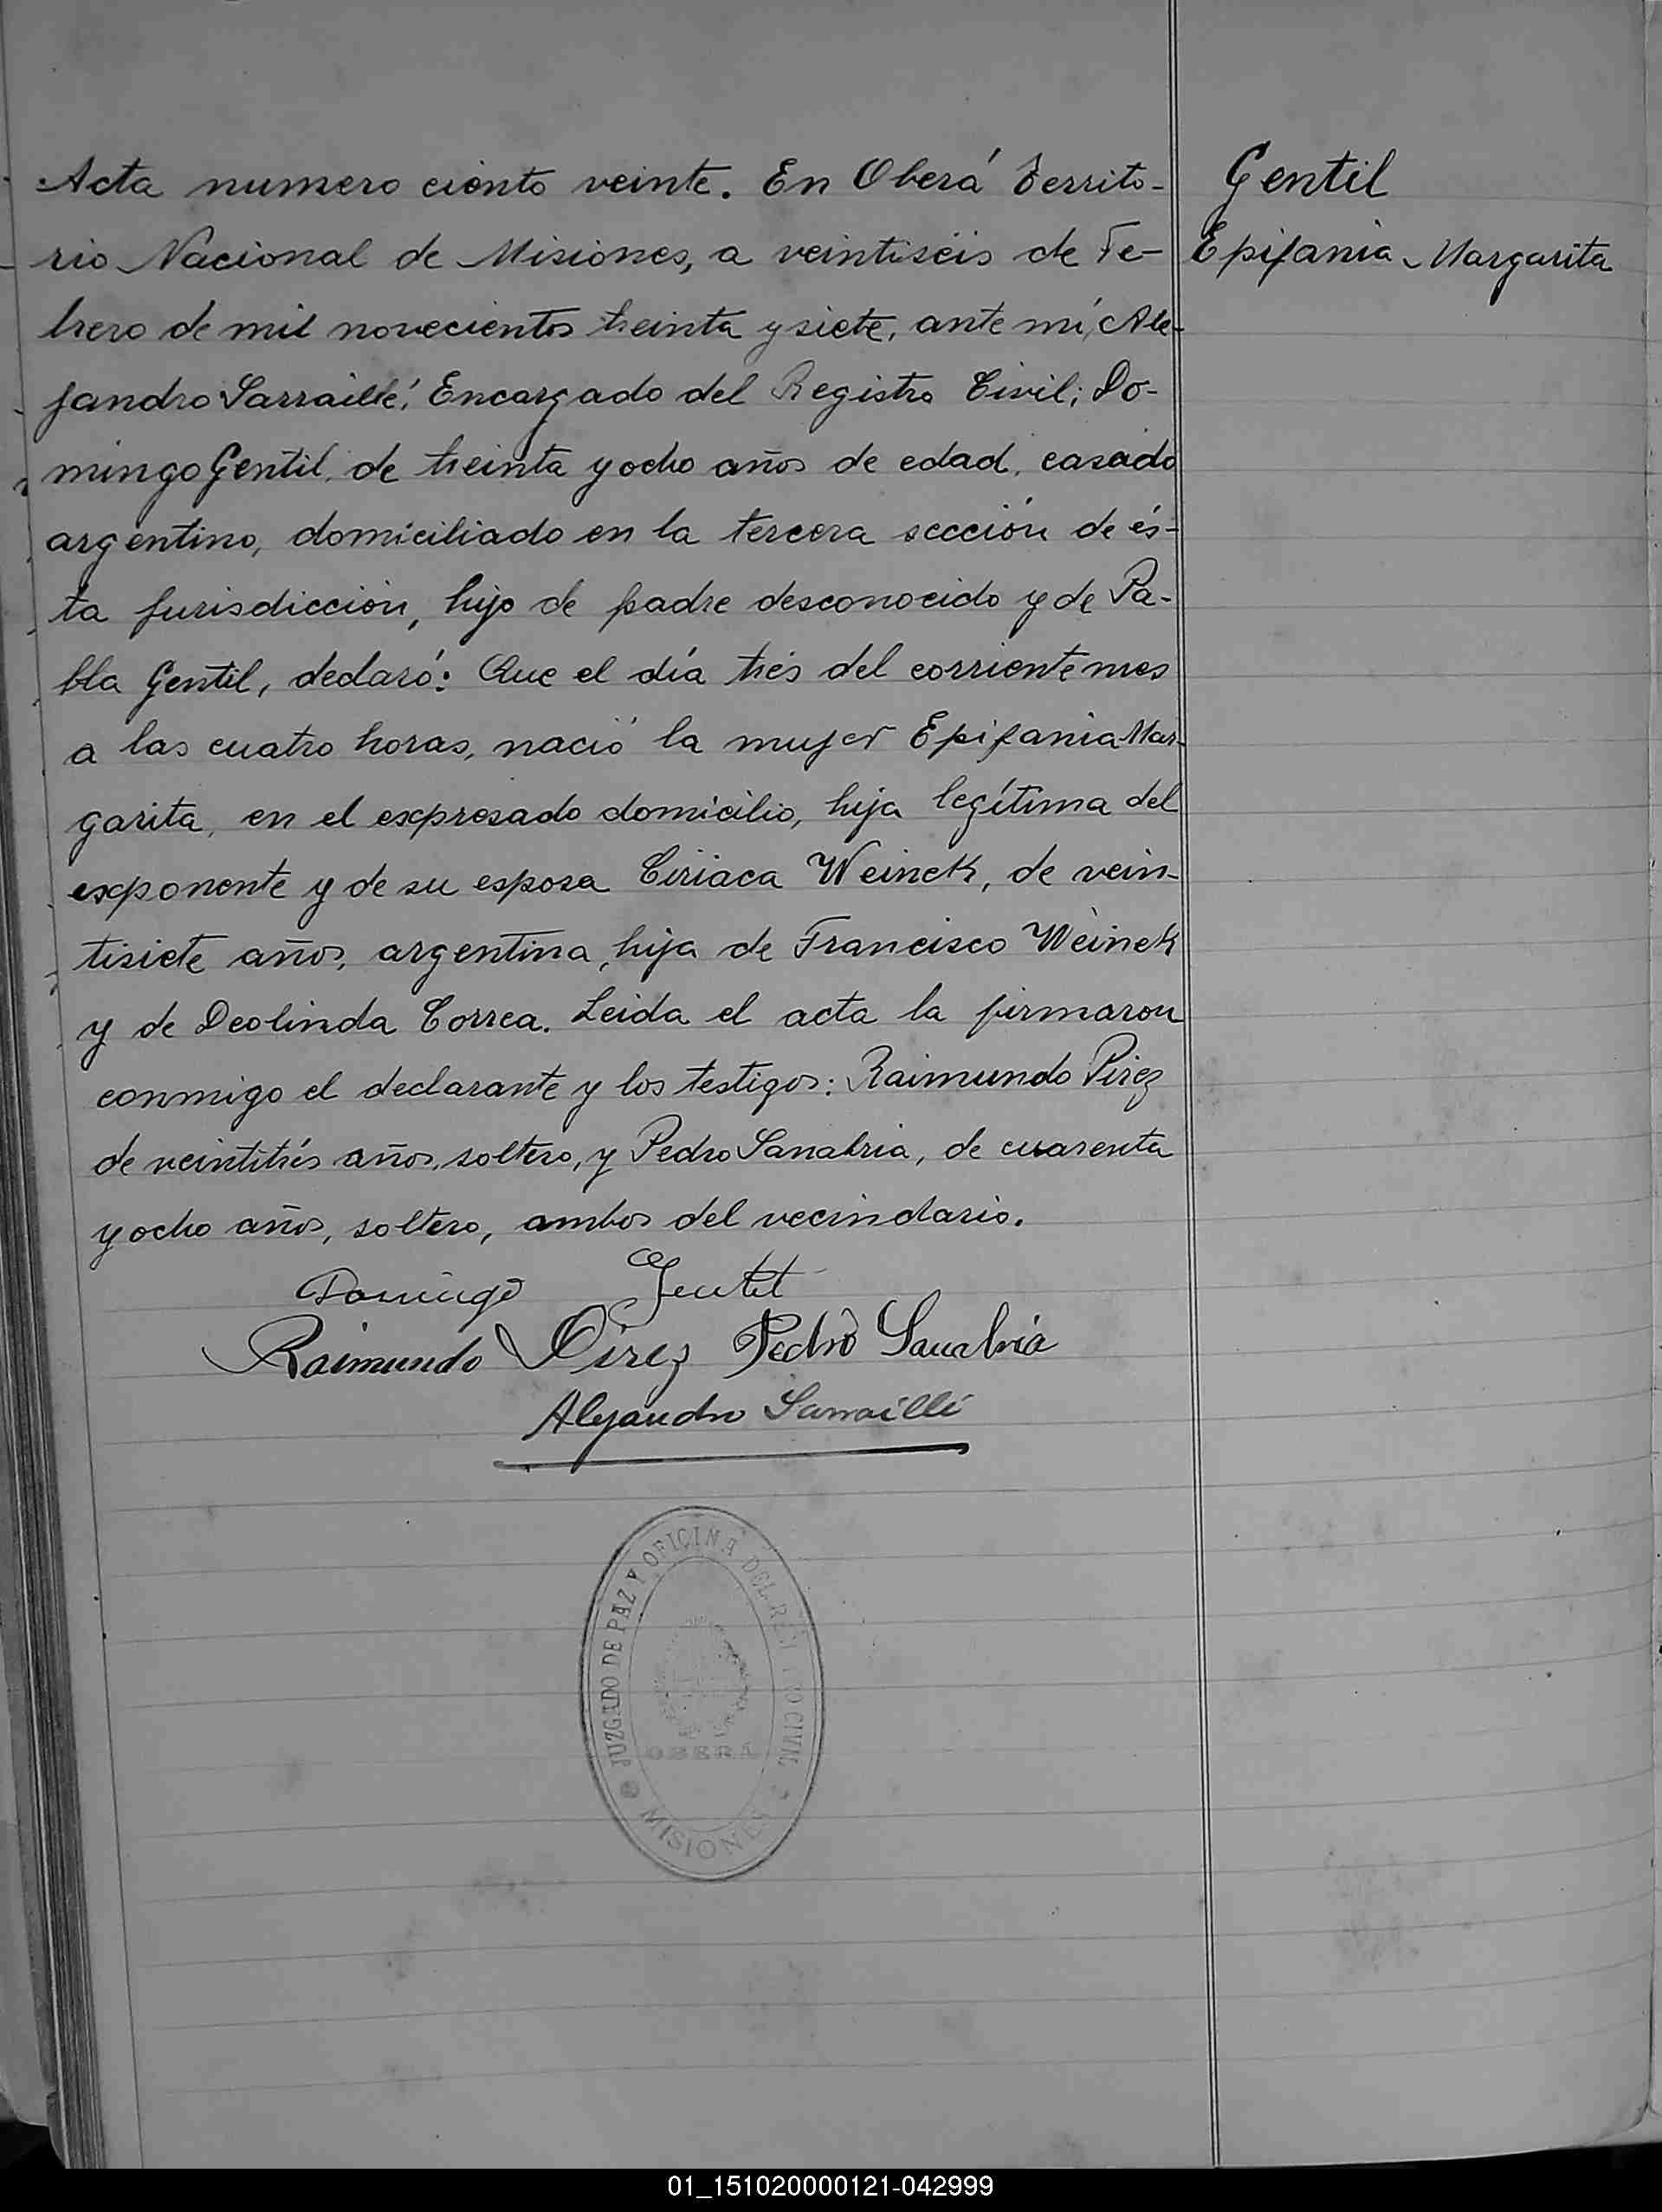 Acta numero ciento veinte. En Oberá Territo-
rio Nacional de Misiones, a veintiséis de Fe-
brero de mil novecientos treinta y siete, ante mí, Ale-
jandro Sarraillé, Encargado del Registro Civil; Do-
mingo Gentil, de treinta y ocho años de edad, casado
argentino, domiciliado en la tercera sección de és-
ta jurisdicción, hijo de padre desconocido y de Pa-
bla Gentil, declaró: Que el día trés del corriente mes
a las cuatro horas, nació la mujer Epifania Mar-
garita, en el expresado domicilio, hija legítima del
exponente y de su esposa Ciriaca Weinek, de vein-
tisiete años, argentina, hija de Francisco Weinek
y de Deolinda Correa. Leida el acta la firmaron
conmigo el declarante y los testigos: Raimundo Pirez
de veintitrés años, soltero, y Pedro Sanabria, de cuarenta
y ocho años, soltero, ambos del vecindario.
Gentil
Epifania Margarita
Domingo Gentil
Raimundo Pirez Pedro Sanabria
Alejandro Sarraillé
JUZGADO DE PAZ Y OFICINA DEL CIVIL
OBERÁ
MISIONES
01_151020000121-042999